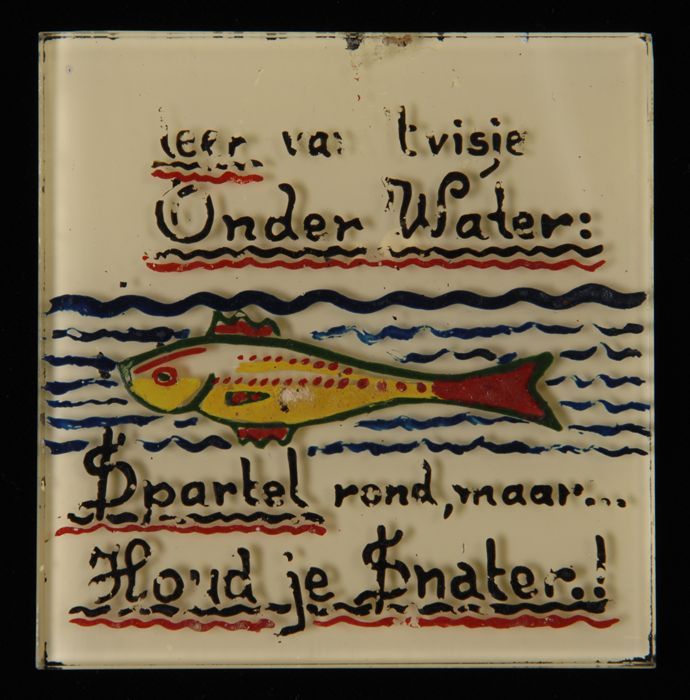 leer van 't visje
Onder Water:
Spartel rond, maar...
Houd je Snater..!